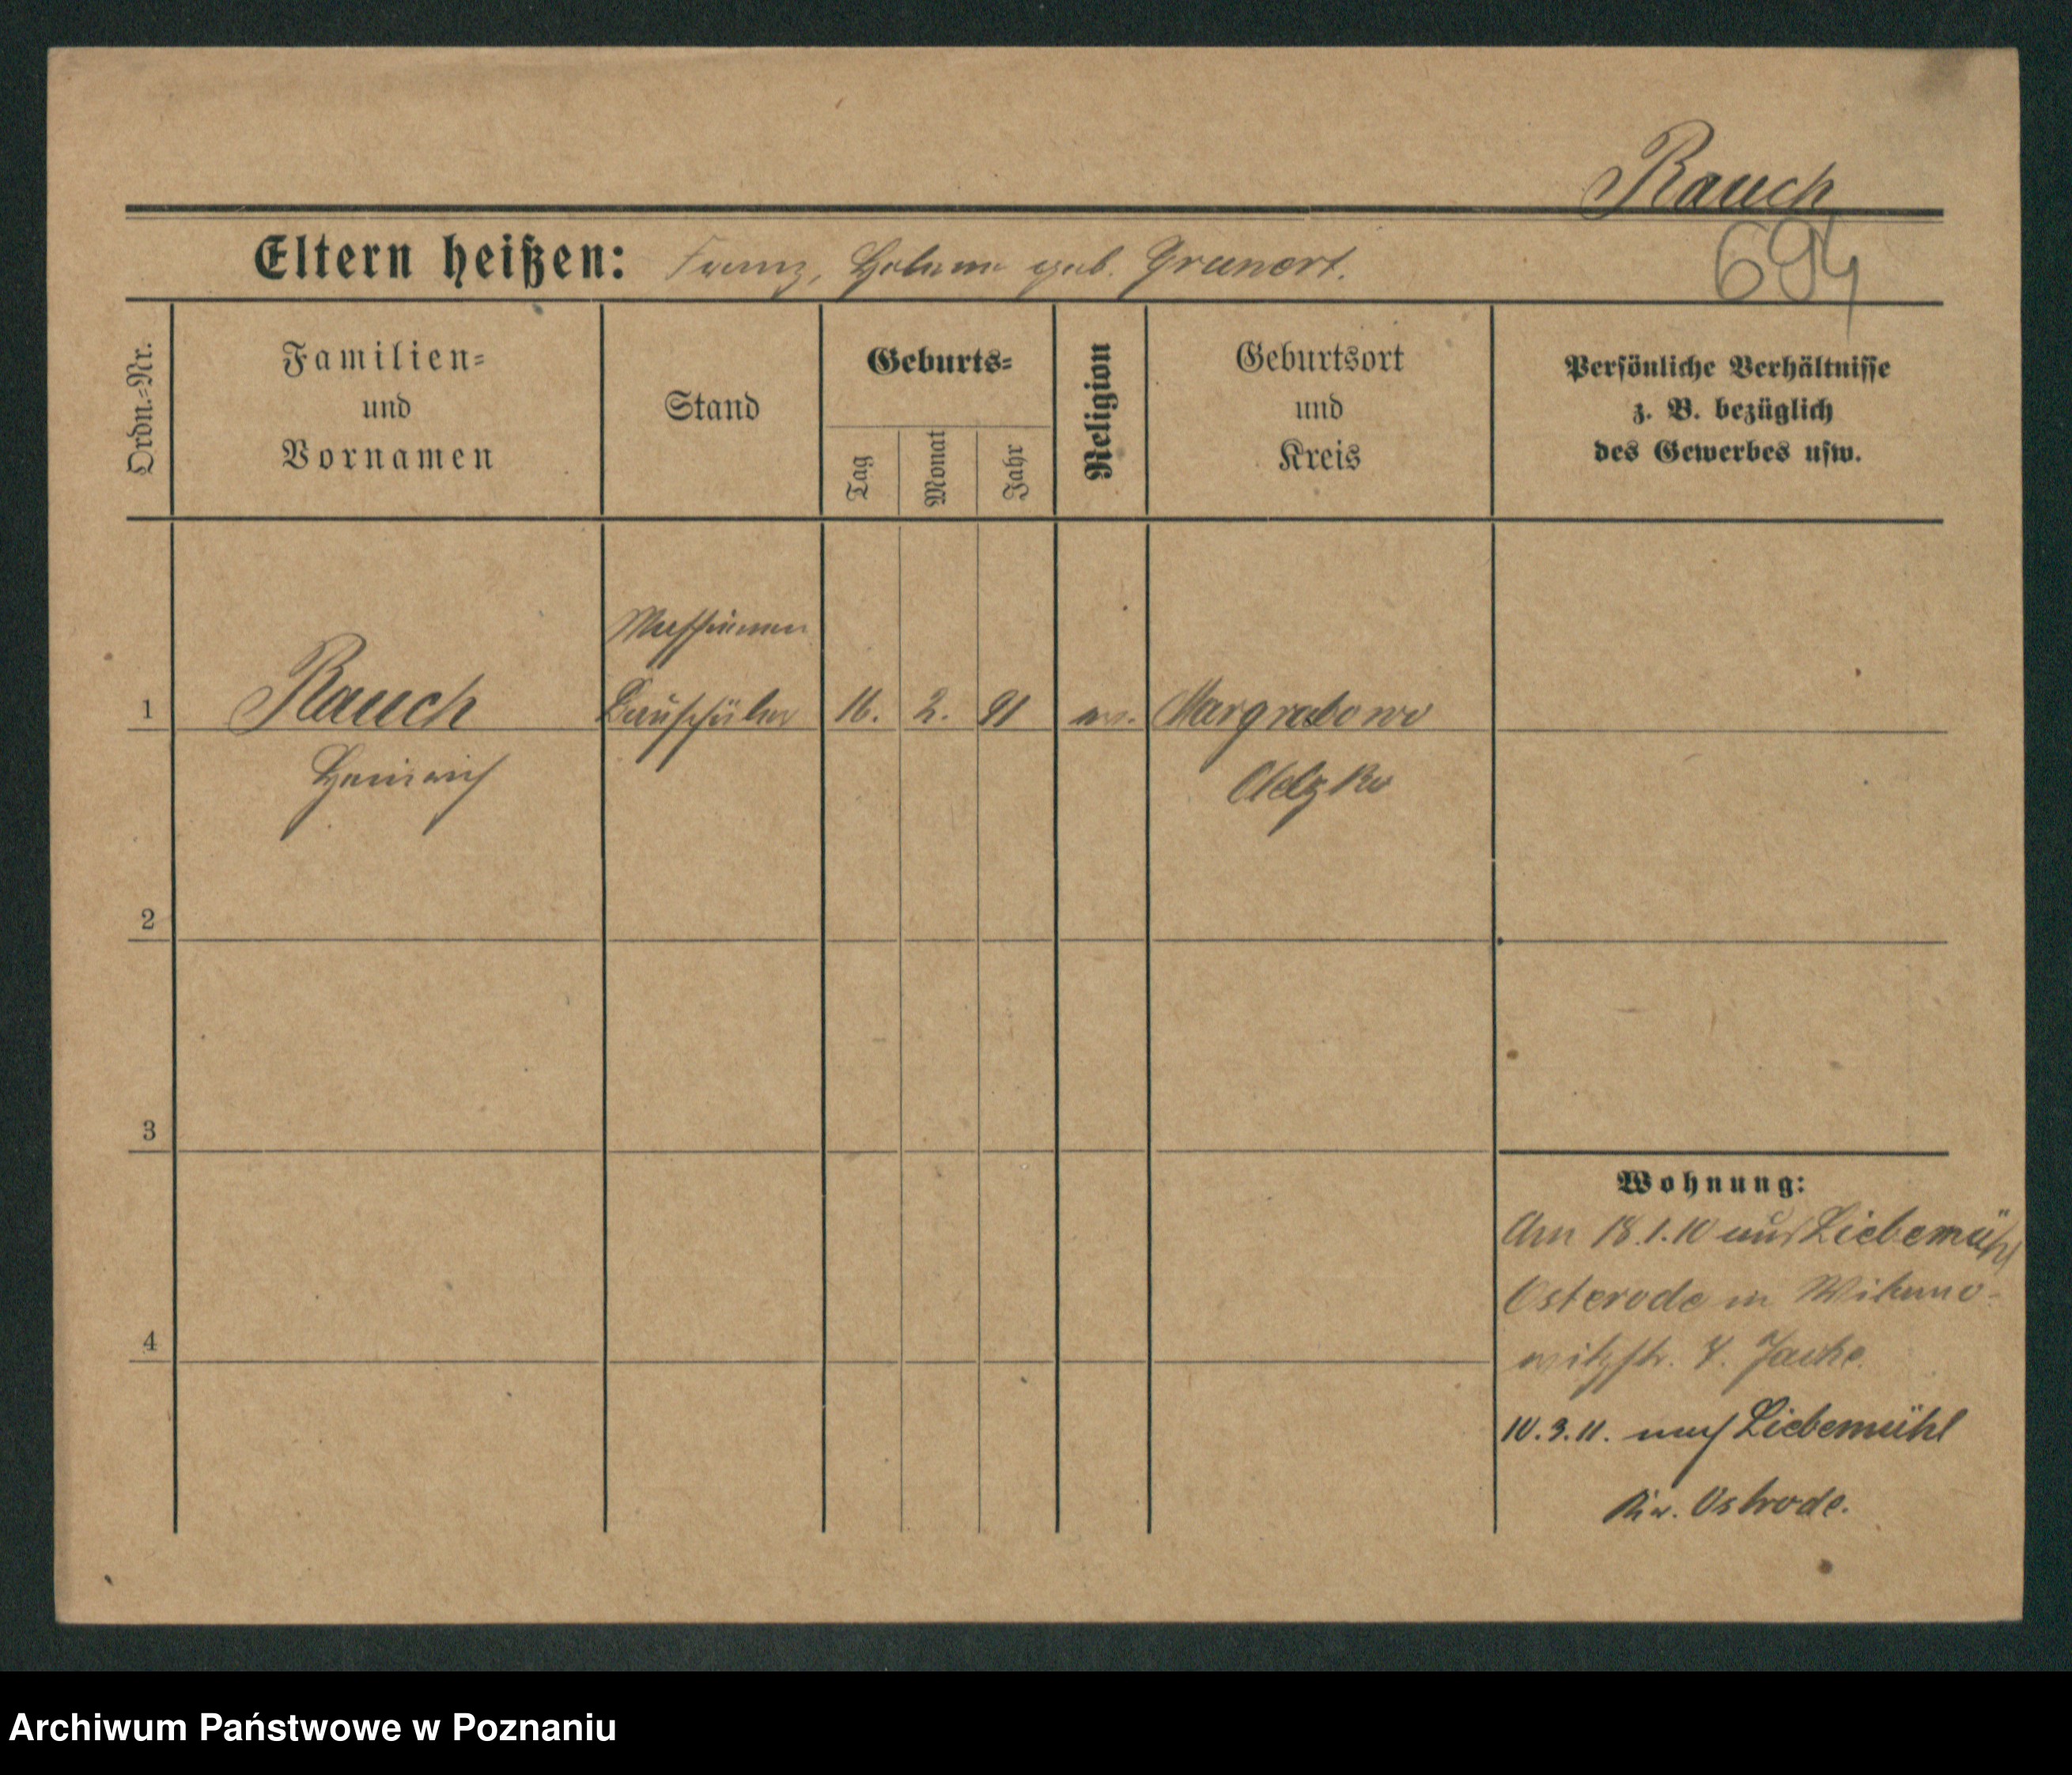 Rauch
694
Eltern heißen: Franz, Helene geb. Grunert.
Ordn.-Nr.
Familien-
und
Vornamen
Stand
Geburts-
Tag
Monat
Jahr
Religion
Geburtsort
und
Kreis
Persönliche Verhältnisse
z. B. bezüglich
des Gewerbes usw.
Maschinen
1 Rauch Bauschüler 16. 2. 91 ev. Margrabowo
Heinrich Oletzko
2
3
4
Wohnung:
Am 18.1.10 aus Liebemühl
Osterode in
10.3.11. nach Liebemühl
Kr. Osterode.
Archiwum Państwowe w Poznaniu